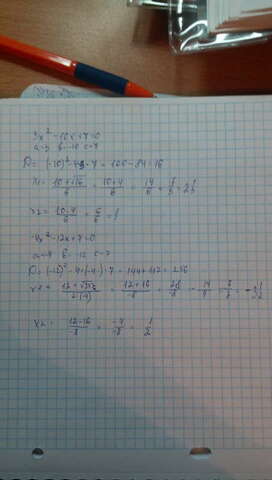 3x² - 10x + 7 = 0
a=3 b=-10 c=7
D = (-10)² - 4·3·7 = 100 - 84 = 16
x1 = (10+√16)/6 = (10+4)/6 = 14/6 =
x2 = (10-4)/6 = 6/6 = 1
-4x² - 12x + 7 = 0
a=-4 b=-12 c=7
D = (-12)² - 4·(-4)·7 = 144 + 112 = 256
x1 = = (12+16)/-8 = 28/-8 =
x2 = (12-16)/-8 = -4/-8 = 1/2